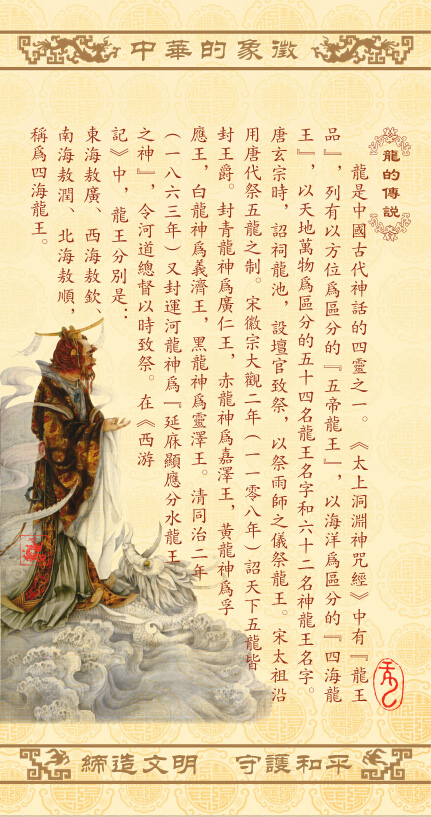 中華的象徵
龍的傳説
龍是中國古代神話的四靈之一。《太上洞淵神咒經》中有『龍王
品』，列有以方位爲區分的『五帝龍王』，以海洋爲區分的『四海龍
王』，以天地萬物爲區分的五十四名龍王名字和六十二名神龍王名字。
唐玄宗時，詔祠龍池，設壇官致祭，以祭雨師之儀祭龍王。宋太祖沿
用唐代祭五龍之制。宋徽宗大觀二年（一一零八年）詔天下五龍皆
封王爵。封青龍神爲廣仁王，赤龍神爲嘉澤王，黃龍神爲孚
應王，白龍神爲義濟王，黑龍神爲靈澤王。清同治二年
（一八六三年）又封運河龍神爲『延庥顯應分水龍王
之神』，令河道總督以時致祭。在《西游
記》中，龍王分別是：
東海敖廣、西海敖欽、
南海敖潤、北海敖順，
稱爲四海龍王。
締造文明　守護和平